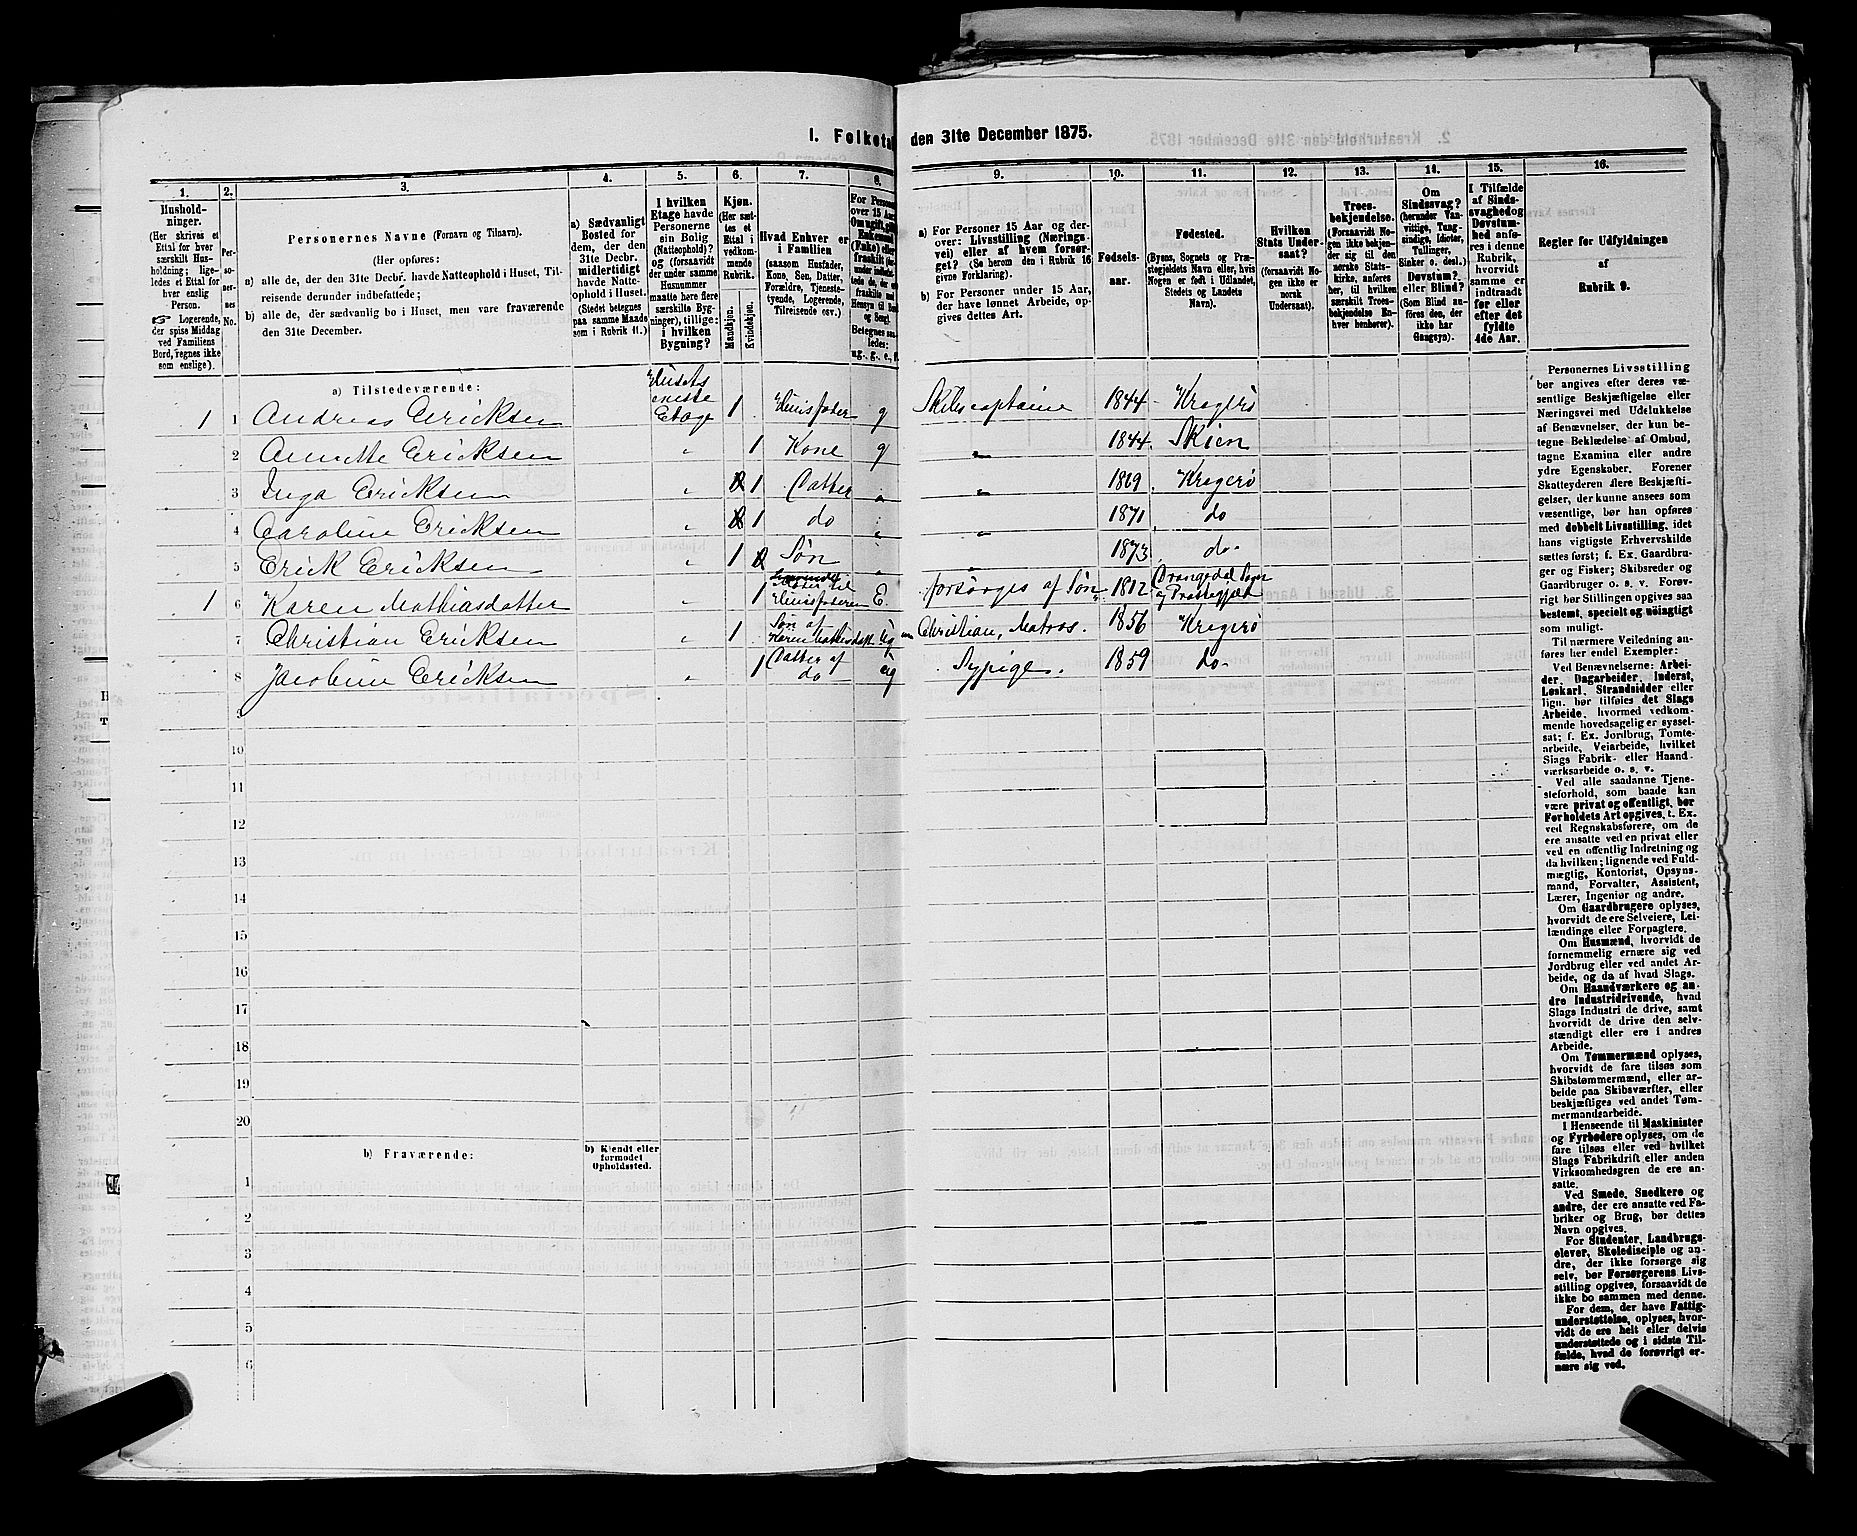 I. Folketal den 31te December 1875.
1. 2. 3. 4. 5. 6. 7. 8. 9. 10. 11. 12. 13. 14. 15. 16.
Husholdninger.
(Her skrives et
Ettal for hver
særskilt Husholdning;
ligeledes et Ettal for
hver enslig
Person.
☞ Logerende,
der spise Middag
ved Familiens
Bord, regnes ikke
som enslige).
Personernes
No.
Personernes Navne (Fornavn og Tilnavn).
(Her opføres:
a) alle de, der den 31te Decbr. havde Natteophold i Huset, Tilreisende
derunder indbefattede;
b) alle de, der sædvanlig bo i Huset, men vare fraværende
den 31te December.
a) Sædvanligt
Bosted for
dem, der den
31te Decbr.
midlertidigt
havde Natteophold
i Huset.
(Stedet betegnes
paa samme Maade
som i Rubrik 11.)
I hvilken
Etage havde
Personerne
sin Bolig
(Natteophold)?
og (forsaavidt
der under samme
Husnummer
maatte høre flere
særskilte Bygninger),
tillige:
i hvilken
Bygning?
Kjøn.
(Her sættes
et
Ettal i
vedkommende
Rubrik.
Mandkjøn.
Kvindekjøn.
Hvad Enhver er
i Familien
(saasom Husfader,
Kone, Søn, Datter,
Forældre, Tjenestetyende,
Logerende,
Tilreisende osv.)
For Personer
over 15 Aar:
Om ugift, gift,
Enkemand
(Enke) eller
fraskilt
Betegnes saaledes:
ug., g., e., f.
a) For Personer 15 Aar og derover:
Livsstilling (Næringsvei)
eller af hvem forsørget?
(Se herom den i Rubrik 16
givne Forklaring).
b) For Personer under 15 Aar,
der have lønnet Arbeide, opgives
dettes Art.
Fødselsaar.
Fødested.
(Byens, Sognets og Præstegjeldets
Navn eller, hvis
Nogen er født i Udlandet,
Stedets og Landets
Navn).
Hvilken
Stats Undersaat?
(forsaavidt Nogen
ikke er
norsk
Undersaat).
Troesbekjendelse.
(Forsaavidt Nogen
ikke bekjender
sig til den
norske Statskirke,
anføres
her, til hvilken
særskilt Troesbekjendelse
Enhver
henhører).
Om
Sindssvag?
(herunder Vanvittige,
Tungsindige,
Idioter,
Tullinger,
Sinker o. desl.)
Døvstum?
eller Blind?
(Som Blind anføres
den, der
ikke har
Gangsyn).
I Tilfælde
af Sindssvaghed
og
Døvstumhed
anføres
i denne
Rubrik,
hvorvidt
samme er
indtraadt
før eller
efter det
fyldte
4de Aar.
Regler for Udfyldningen
af
Rubrik 9.
a) Tilstedeværende:
1 1 Andreas Ericksen Husets eneste Etage 1 Huusfader g Skibscaptaine 1844 Kragerø
2 Annette Ericksen " 1 Kone g " 1844 Skien
3 Inga Ericksen " 1 Datter " " 1869 Kragerø
4 Caroline Ericksen " 1 do " " 1871 do
5 Erick Ericksen " 1 Søn " 1873 do
1 6 Karen Mathiasdatter " 1 Moder til Huusfaderen E. forsørges af Søn 1812 Drangedal Sogn og Præstegjæld
7 Christian Ericksen " 1 Søn af Karen Mathisdatt. ug Christian, Matros. 1856 Kragerø
8 Jacobine Ericksen " 1 Datter af do ug Sypige. 1859 do
9
10
11
12
13
14
15
16
17
18
19
20
b) Fraværende:
b) Kjendt eller
formodet
Opholdssted.
1
2
3
4
5
6
Personernes Livsstilling
bør angives efter deres væsentlige
Beskjæftigelse eller
Næringsvei med Udelukkelse
af Benævnelser, der kun betegne
Beklædelse af Ombud,
tagne Examina eller andre
ydre Egenskaber. Forener
Skatteyderen flere Beskjæftigelser,
der kunne ansees som
væsentlige, bør han opføres
med dobbelt Livsstilling, idet
hans vigtigste Erhvervskilde
sættes først; f. Ex. Gaardbruger
og Fisker; Skibsreder og
Gaardbruger o. s. v. Forøvrigt
bør Stillingen opgives saa
bestemt, specielt og nøiagtigt
som muligt.
Til nærmere Veiledning anføres
her endel Exempler:
Ved Benævnelserne: Arbeider,
Dagarbeider, Inderst,
Løskarl, Strandsidder eller
lign. bør tilføies det Slags
Arbeide, hvormed vedkommende
hovedsagelig er sysselsat;
f. Ex. Jordbrug, Tomtearbeide,
Veiarbeide, hvilket
Slags Fabrik- eller Haandværksarbeide
o. s. v.
Ved alle saadanne Tjenesteforhold,
som baade kan
være privat og offentligt, bør
Forholdets Art opgives, t. Ex.
ved Regnskabsførere, om de
ere ansatte ved en privat eller
ved en offentlig Indretning og
da hvilken; lignende ved Fuldmægtig,
Kontorist, Opsynsmand,
Forvalter, Assistent,
Lærer, Ingeniør og andre.
Om Gaardbrugere oplyses,
hvorvidt de ere Selveiere, Leilændinge
eller Forpagtere.
Om Husmænd, hvorvidt de
fornemmelig ernære sig ved
Jordbrug eller ved andet Arbeide,
og da af hvad Slags.
Om Haandværkere og andre
Industridrivende, hvad
Slags Industri de drive, samt
hvorvidt de drive den selvstændigt
eller ere i andres
Arbeide.
Om Tømmermænd oplyses,
hvorvidt de fare tilsøs som
Skibstømmermænd, eller arbeide
paa Skibsværfter, eller
beskjæftiges ved andet Tømmermandsarbeide.
I Henseende til Maskinister
og Fyrbødere oplyses, om de
fare tilsøs eller ved hvilket
Slags Fabrikdrift eller anden
Virksomhedsgren de ere ansatte.
Ved Smede, Snedkere og
andre, der ere ansatte ved Fabriker
og Brug, bør dettes
Navn opgives.
For Studenter, Landbrugselever,
Skoledisciple og andre,
der ikke forsørge sig
selv, bør Forsørgerens Livsstilling
opgives, forsaavidt de
ikke bo sammen med denne.
For dem, der have Fattigunderstøttelse,
oplyses, hvorvidt
de ere helt eller delvis
understøttede og i sidste Tilfælde,
hvad de forøvrigt ernære
sig ved.